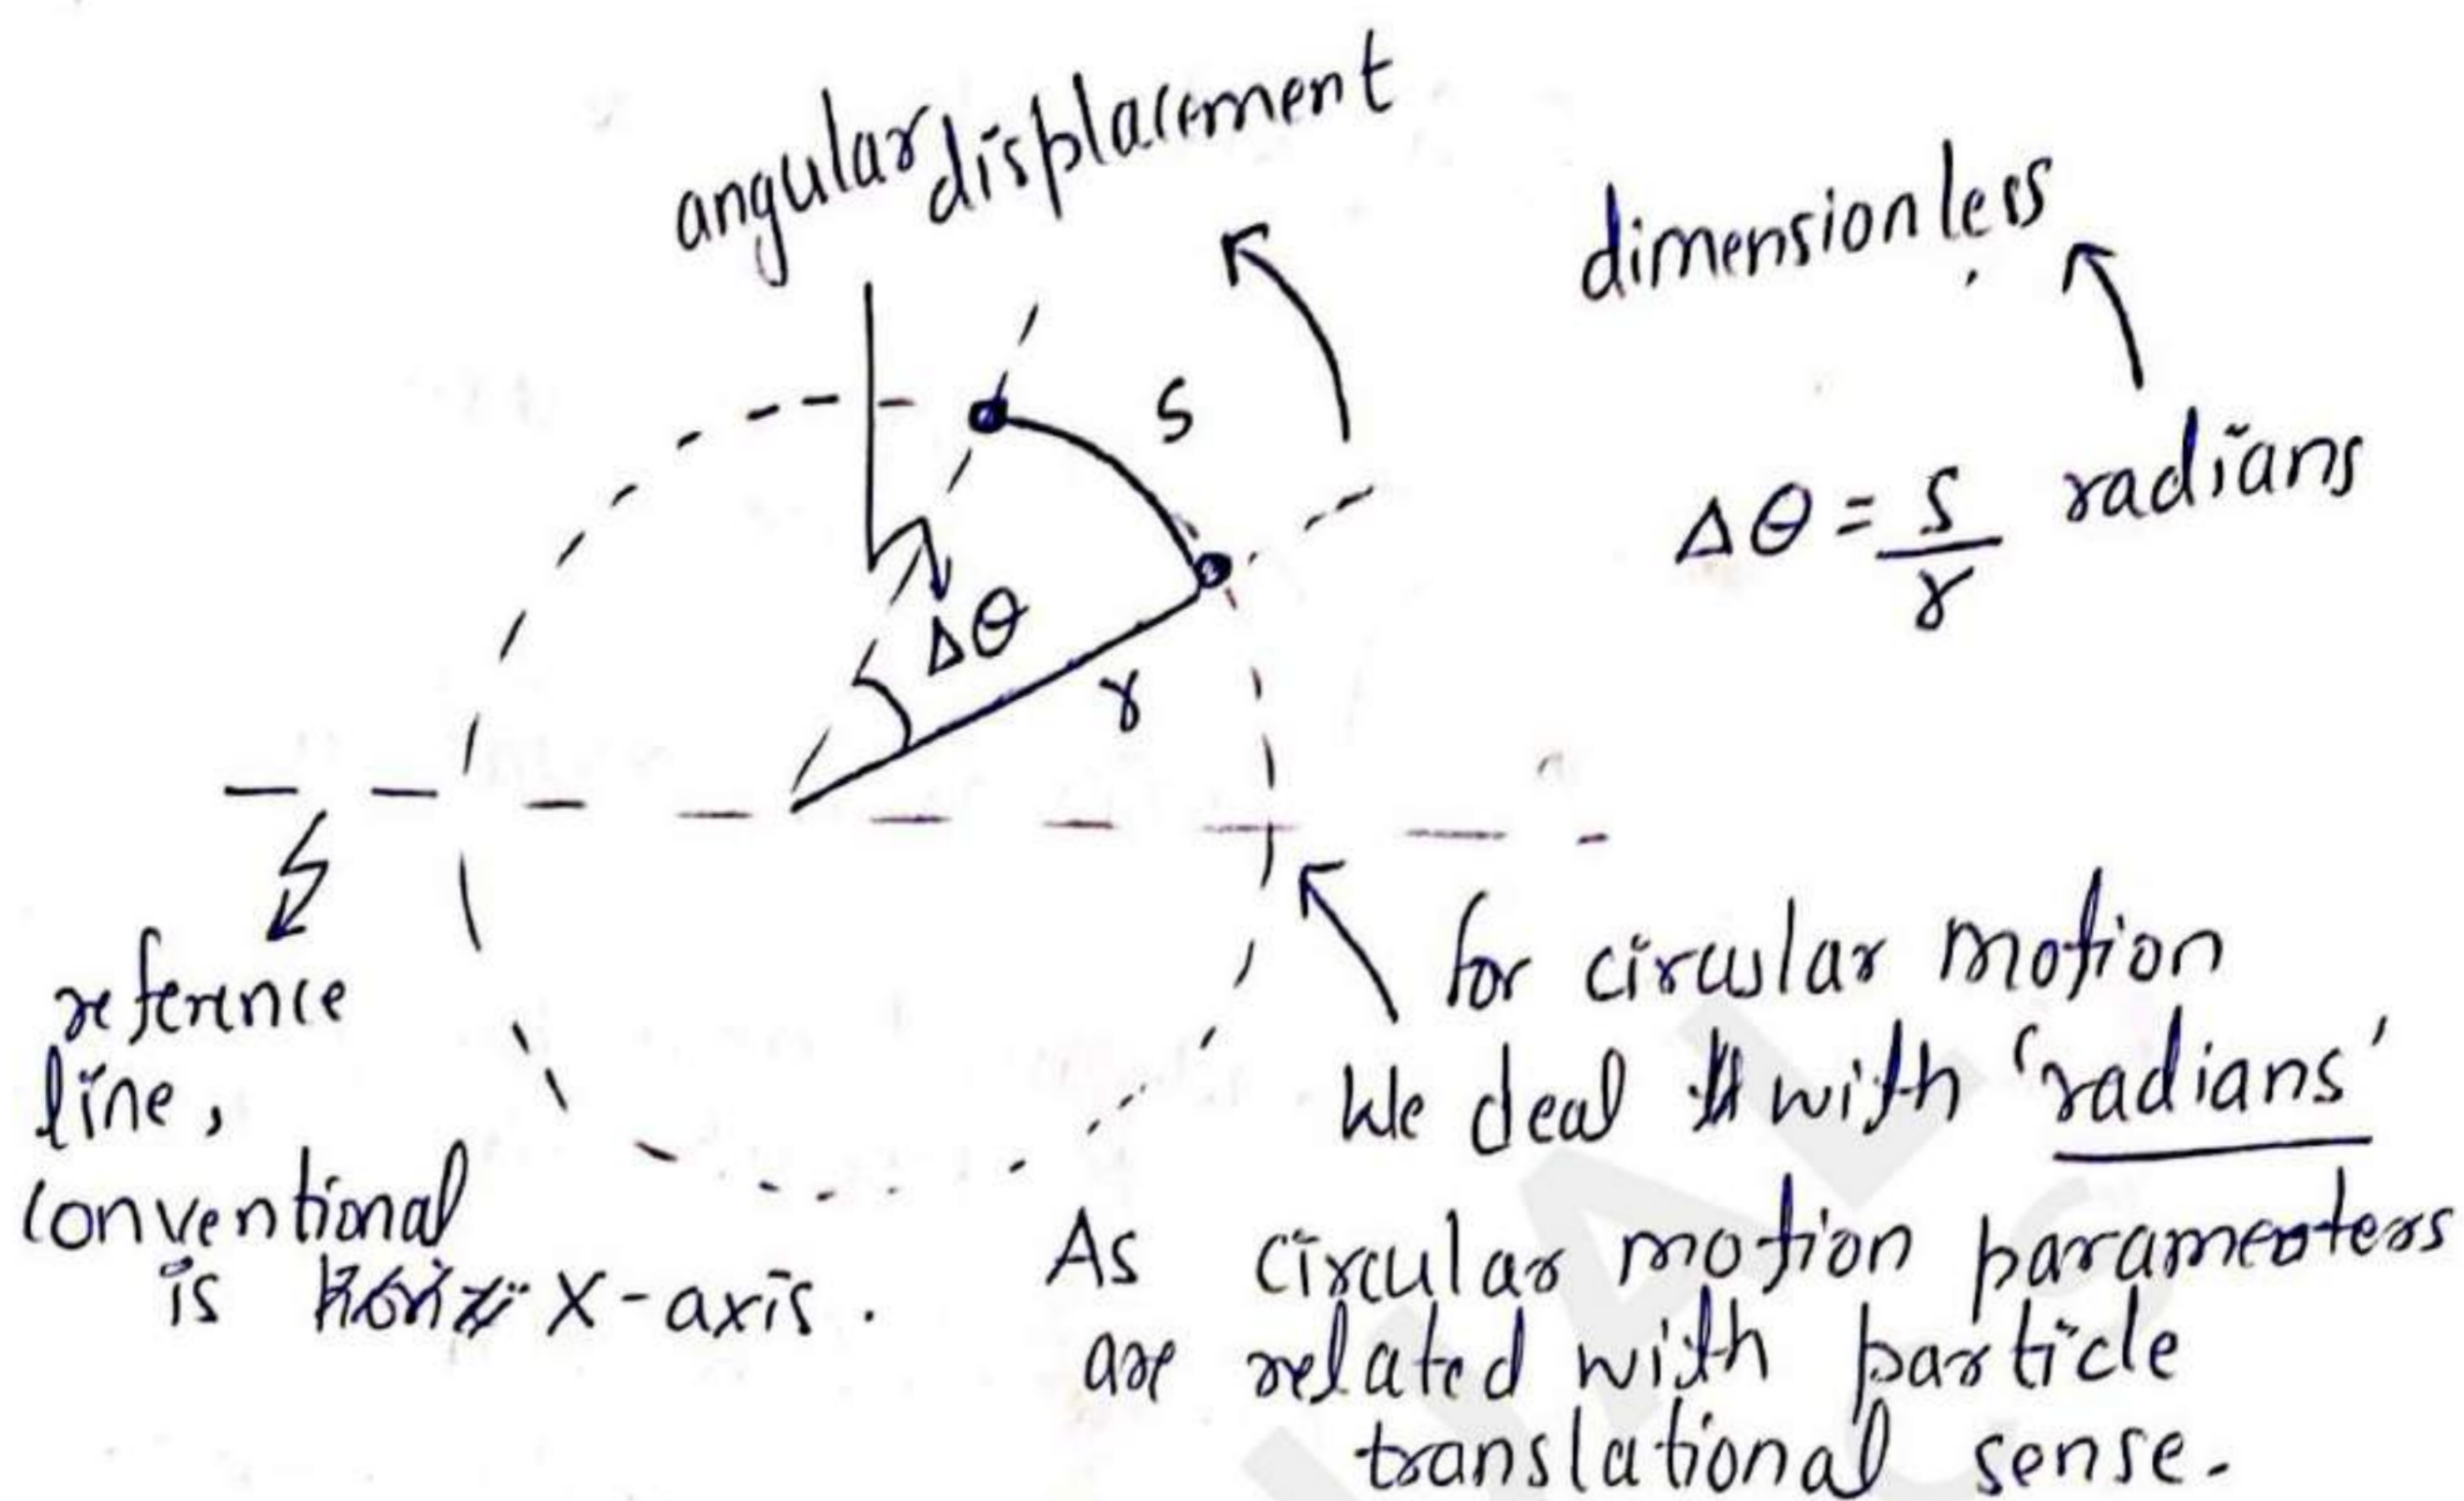 angular displacement
dimensionless
s
Δθ = s/r radians
Δθ
r
reference
line,
conventional
is X-axis.
for circular motion
We deal with 'radians'
As circular motion parameters
are related with particle
translational sense.